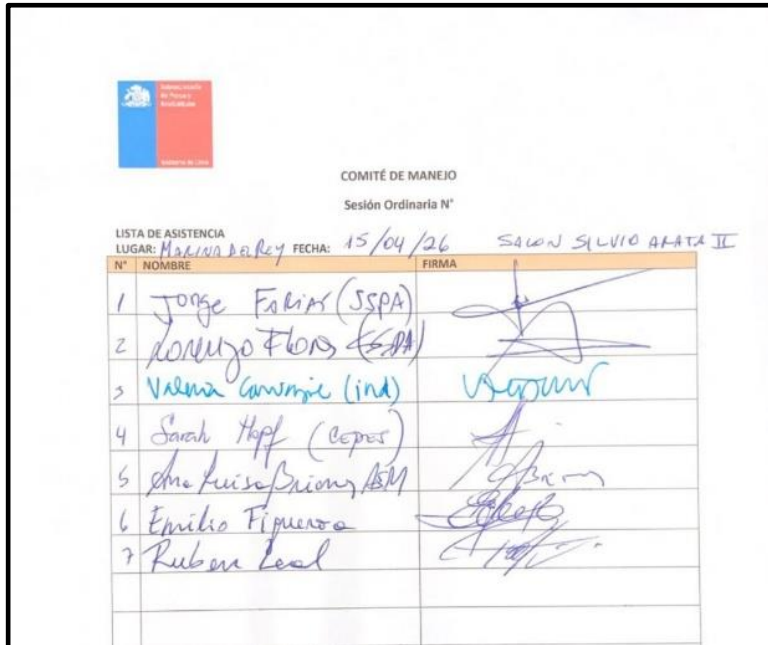 Subsecretaría
de Pesca y
Acuicultura
Gobierno de Chile
COMITÉ DE MANEJO
Sesión Ordinaria N°
LISTA DE ASISTENCIA
LUGAR: MARINA DEL REY FECHA: 15/04/26 SALON SILVIO ARATA II
N° NOMBRE FIRMA
1 Jorge Farias (SSPA)
2 Lorenzo Flores (SSPA)
3 Valeria (ind)
4 Sarah Hopf (Cepes)
5 Ana Luisa Briones
6 Emilio Figueroa
7 Ruben Leal